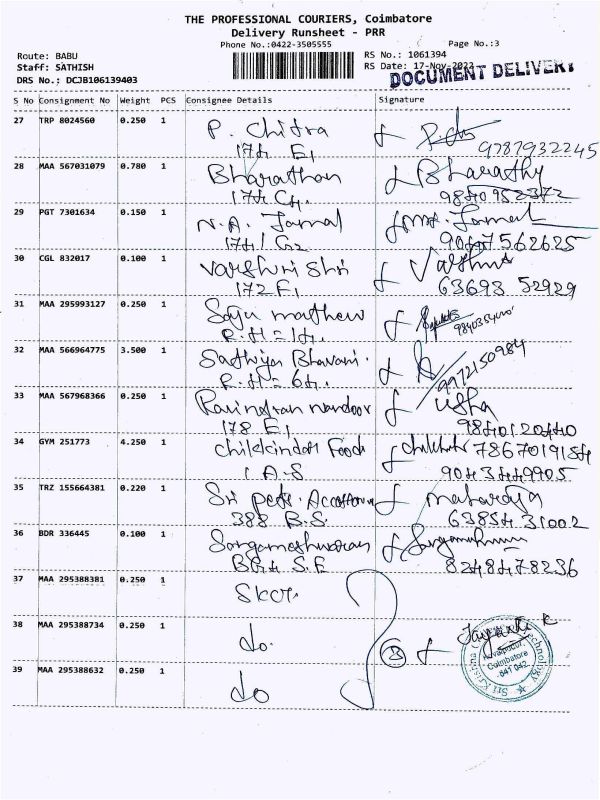 THE PROFESSIONAL COURIERS, Coimbatore
Delivery Runsheet - PRR
Phone No.:0422-3505555
Page No.:3
Route: BABU
Staff: SATHISH
DRS No.: DCJB106139403
RS No.: 1061394
RS Date: 17-Nov-2022
DOCUMENT DELIVERY
S No Consignment No Weight PCS Consignee Details Signature
27 TRP 8024560 0.250 1 P. Chitra
174 E1 9787932245
28 MAA 567031079 0.780 1 Bharathan Bharathy
174 G4. 9840952372
29 PGT 7301634 0.150 1 N.A. Jamal Jamal
174/G2 9047562625
30 CGL 832017 0.100 1 Varshni Shri
172 E1 63693 52929
31 MAA 295993127 0.250 1 Saju mathew
R.H=14.
32 MAA 566964775 3.500 1 Sathiya Bhavani.
R.H=64. 9972150984
33 MAA 567968366 0.250 1 Ravindran nandoor Usha
178 E1 9840120440
34 GYM 251773 4.250 1 chikkindar Food 7867019154
1 A.S 9043449905
35 TRZ 155664381 0.220 1 Sri pets. maharaja
388 B.S. 63854 31002
36 BDR 336445 0.100 1 Sangameshwaran
B64 S.F 8248478236
37 MAA 295388381 0.250 1 Skct.
38 MAA 295388734 0.250 1 do.
3
39 MAA 295388632 0.250 1 do
Sri Krishna Technology
Kovaipudur,
Coimbatore
641 042